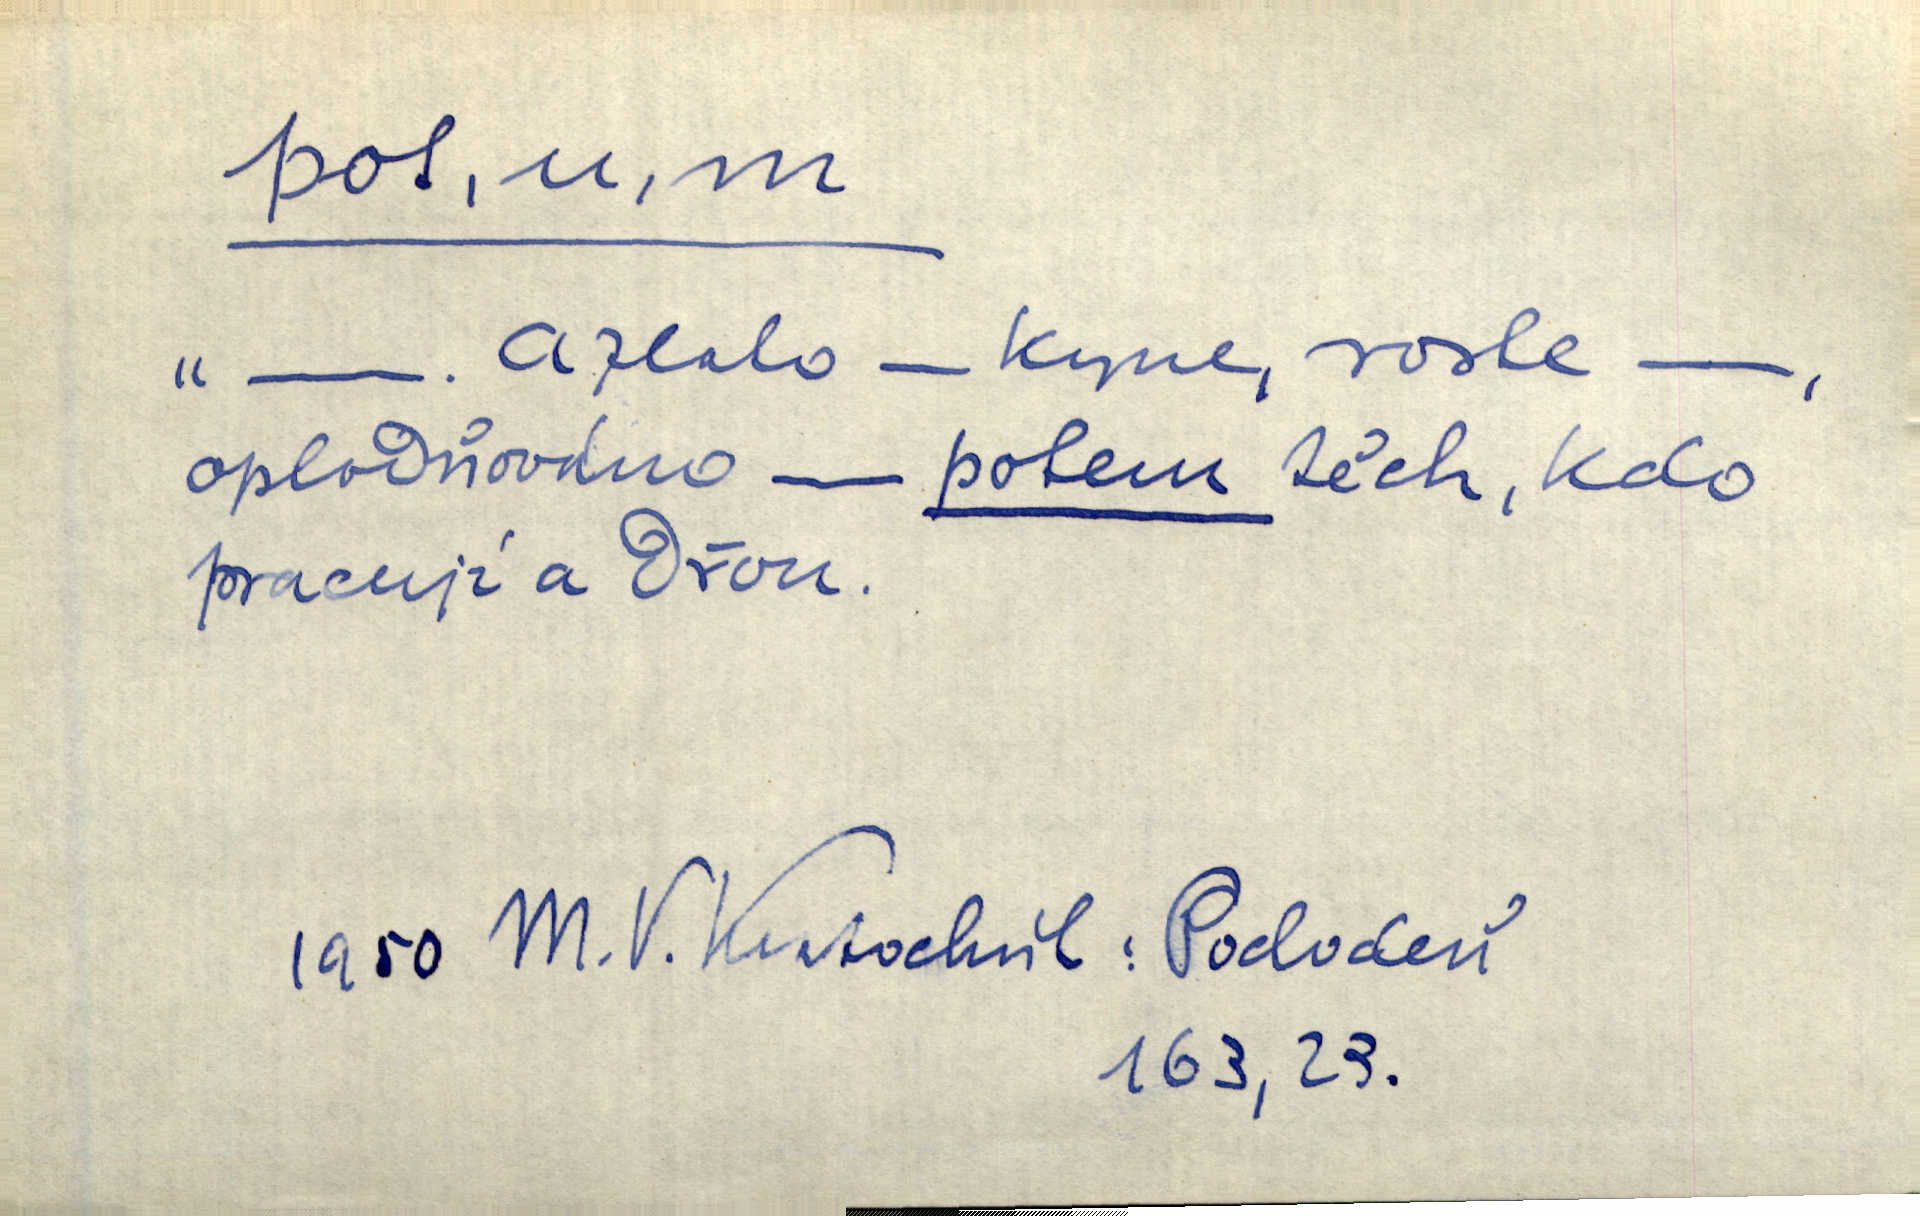 pot, u, m
" —. A zlato — kyne, roste —,
oplodňováno — potem těch, kdo
pracují a dřou.
1950 M. V. Kratochvíl: Podoben
163, 23.